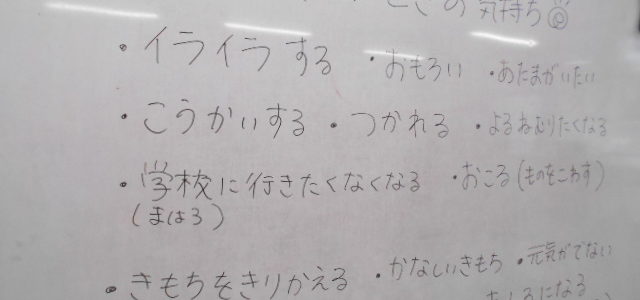 ときの 気持ち
・イライラする ・おもろい ・あたまがいたい
・こうかいする ・つかれる ・よるねむりたくなる
・学校に行きたくなくなる ・おこる(ものをこわす)
(まはろ)
・きもちをきりかえる ・かなしいきもち ・元気がでない
になる